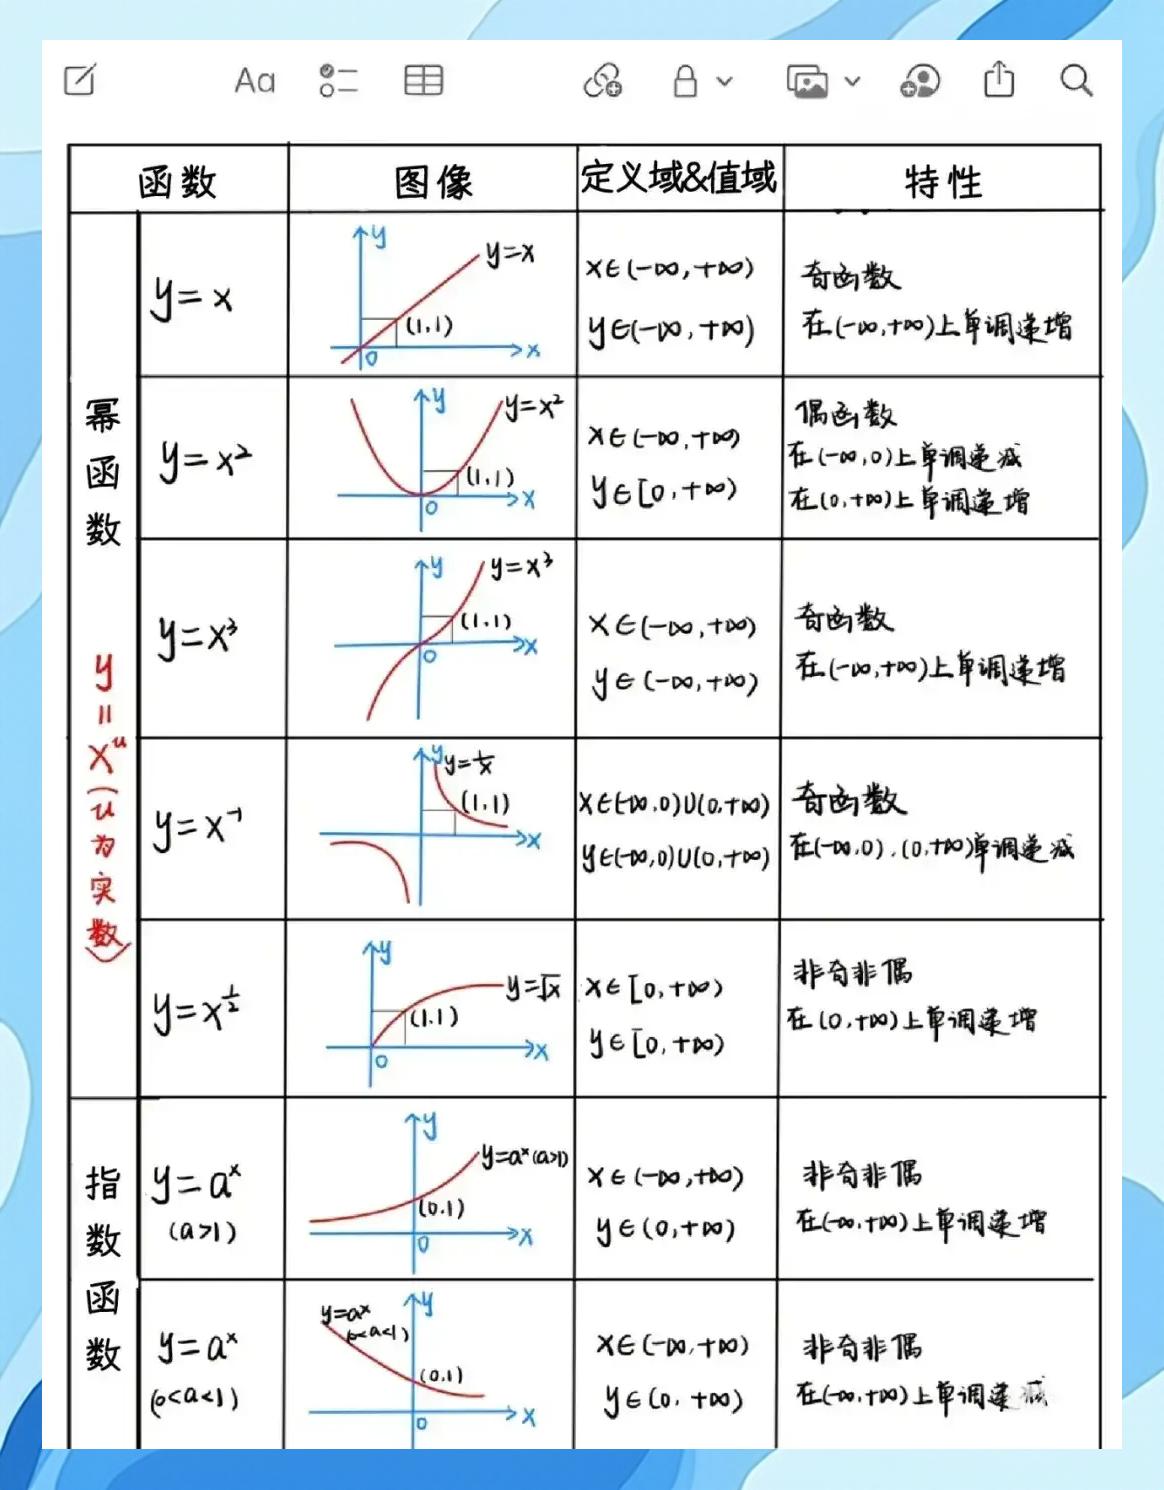 Aa
函数 图像 定义域&值域 特性
幂函数
y=xᵘ(u为实数)
y=x
y
y=x
(1,1)
0
x
x∈(-∞,+∞)
y∈(-∞,+∞)
奇函数
在(-∞,+∞)上单调递增
y=x²
y
y=x²
(1,1)
0
x
x∈(-∞,+∞)
y∈[0,+∞)
偶函数
在(-∞,0)上单调递减
在(0,+∞)上单调递增
y=x³
y
y=x³
(1,1)
0
x
x∈(-∞,+∞)
y∈(-∞,+∞)
奇函数
在(-∞,+∞)上单调递增
y=x⁻¹
y
y=1/x
(1,1)
x
x∈(-∞,0)∪(0,+∞)
y∈(-∞,0)∪(0,+∞)
奇函数
在(-∞,0),(0,+∞)单调递减
y=x^½
y
y=√x
(1,1)
0
x
x∈[0,+∞)
y∈[0,+∞)
非奇非偶
在(0,+∞)上单调递增
指数函数
y=aˣ
(a>1)
y
y=aˣ(a>1)
(0,1)
0
x
x∈(-∞,+∞)
y∈(0,+∞)
非奇非偶
在(-∞,+∞)上单调递增
y=aˣ
(0<a<1)
y
y=aˣ
(0<a<1)
(0,1)
0
x
x∈(-∞,+∞)
y∈(0,+∞)
非奇非偶
在(-∞,+∞)上单调递减